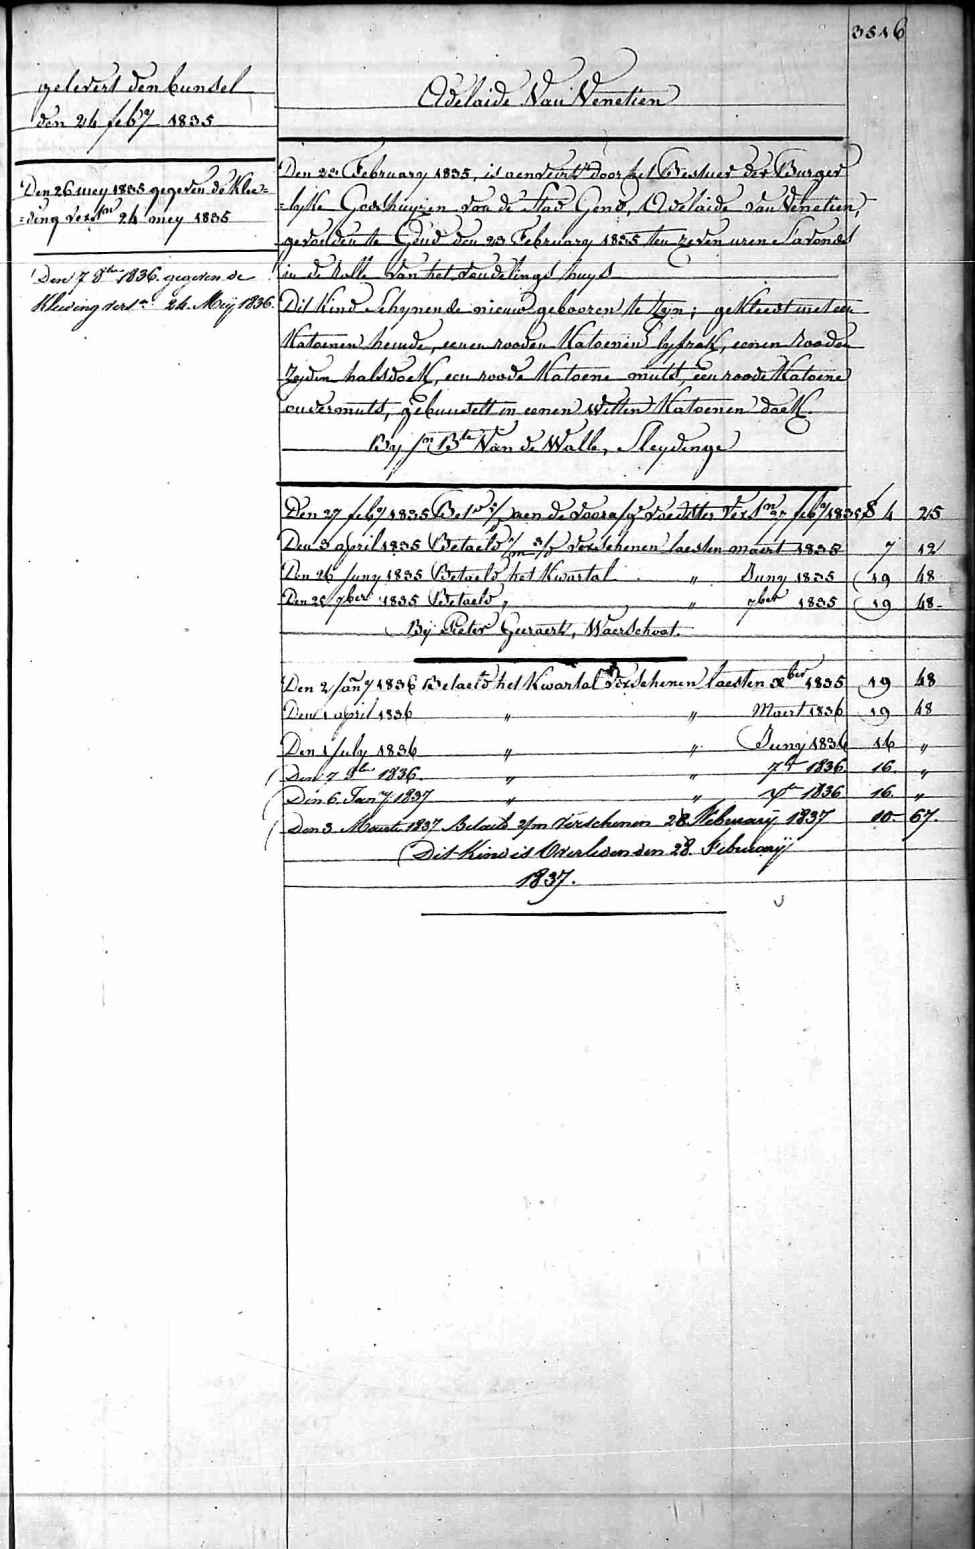 3516
gelevert den bunsel
den 24 feb.y 1835
Den 26 mey 1835 gegeven de klee=
=ding vers.en 24 mey 1835
Den 7 8.bre 1836 gegeven de
kleeding vers.n 24 Meij 1836.
Adelaide Van Venetien
Den 23 February 1835, is aenveird door het Bestuer der Burger
=lyke Godshuyzen van de Stad Gend, Adelaide van Venetien,
gevonden te Gend den 23 February 1835 ten zeven uren s'avonds
in de rolle van het vondelings huys
Dit kind schynende nieuw gebooren te zyn; gekleed met een
katoenen hemde, eenen rooden katoenen lyfrak, eenen rooden
zyden halsdoek, een roode katoene muts, een roode katoene
ondermuts, gebunselt in eenen witten katoenen doek.
By J.n B.te Van de Walle, Sleydinge
Den 27 feb.y 1835 Bet.d aen de voedster vers.en 27 feb.y 1835 4 25
Den 3 april 1835 Betaeld verschenen laesten maert 1835 7 12
Den 26 juny 1835 Betaeld het kwartal " Juny 1835 19 48
Den 25 7ber 1835 Betaeld, " 7ber 1835 19 48-
By Pieter Geeraert, Waerschoot.
Den 2 jan.y 1836 Betaeld het kwartal verschenen laesten xber 1835 19 48
Den 1 april 1836 " " Maert 1836 19 48
Den 1 july 1836 " " Juny 1836 16 "
Den 7 8.bre 1836. " " 7.br 1836. 16. "
Den 6. Jan.y 1837 " " x.br 1836 16. "
Den 3. Maerte 1837 Betaeld 2/m verschenen 28 Februarij 1837 10 67.
Dit kind is Overleden den 28. Februarij
1837.